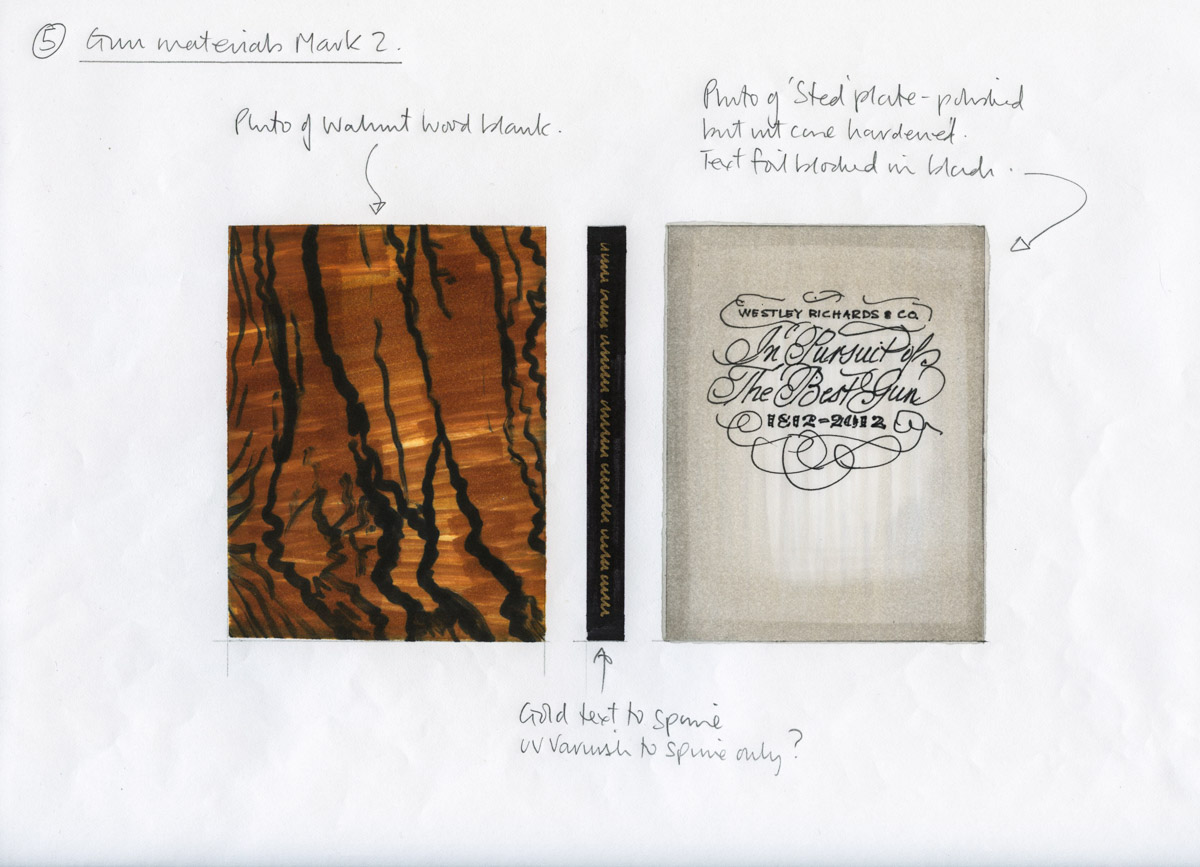 5 Gun materials Mark 2.
Photo of Walnut wood blank.
Photo of 'Steel' plate - polished
but not case hardened.
Text foil blocked in black.
WESTLEY RICHARDS & CO.
In Pursuit of
The Best Gun
1812-2012
Gold text to spine
UV Varnish to spine only?